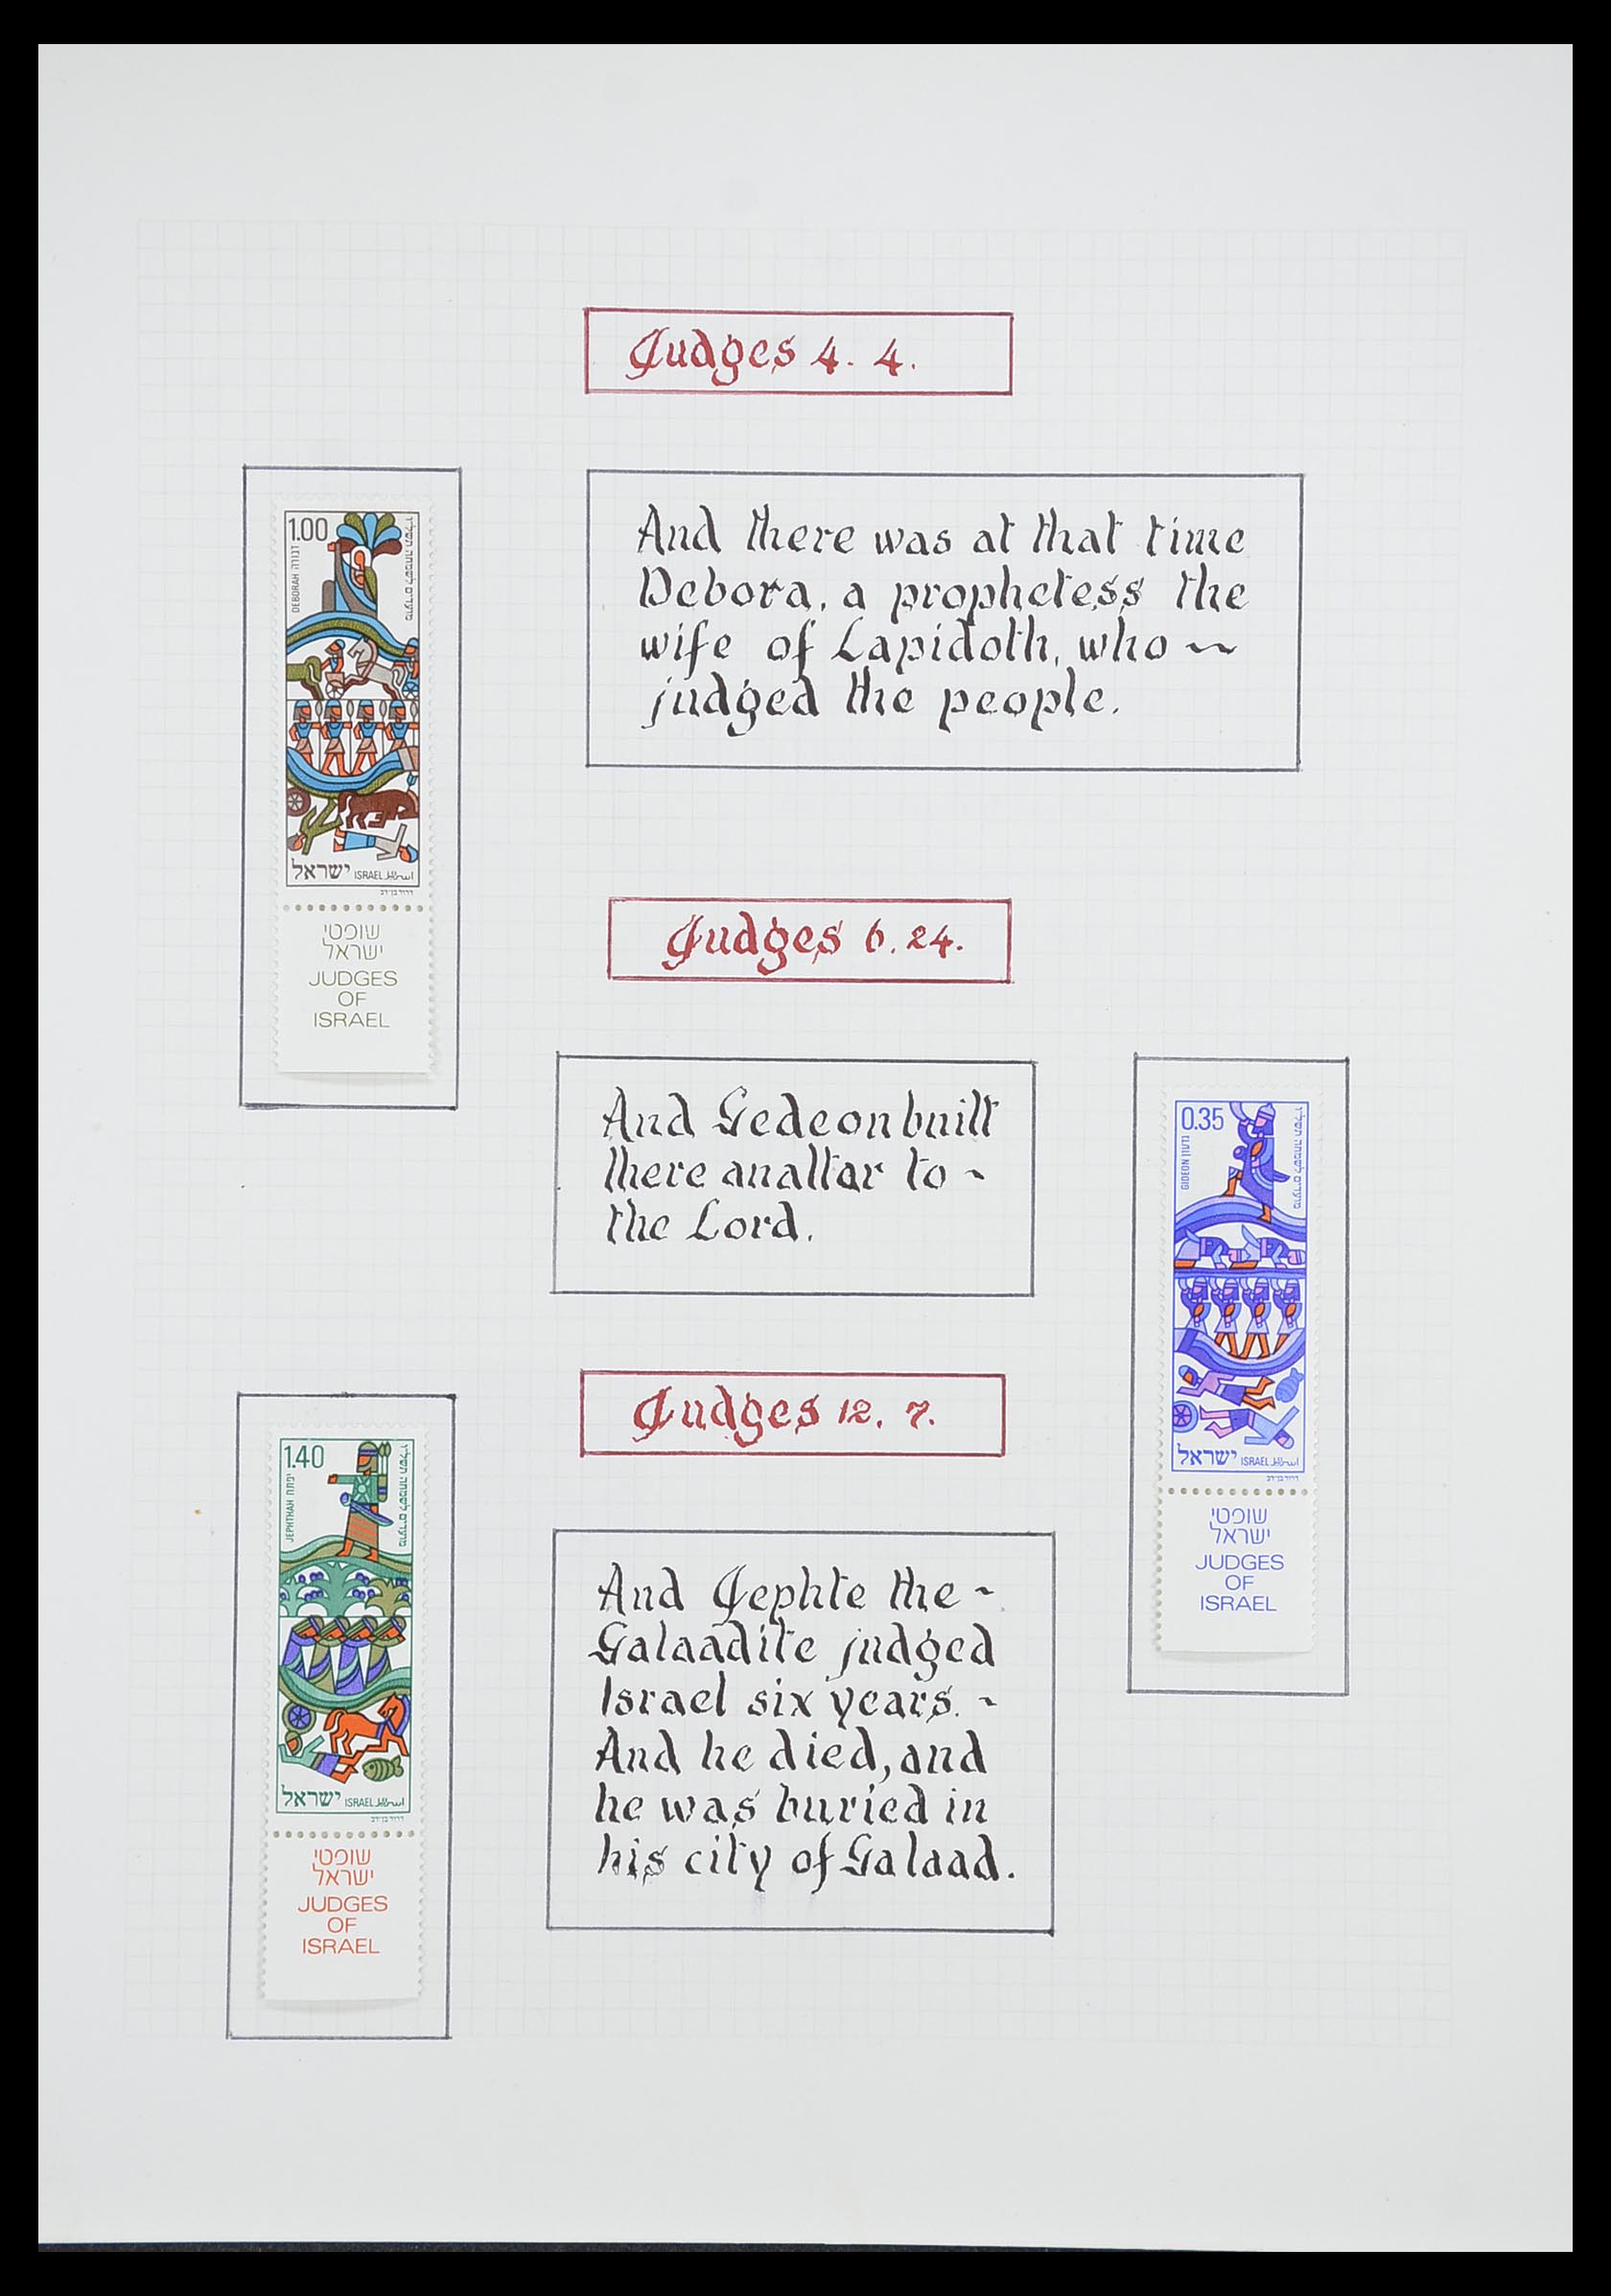 Judges 4. 4.
1.00
DEBORAH דבורה
מועדים לשמחה תשל״ו
ישראל ISRAEL اسرائيل
דוד בן-דב
שופטי
ישראל
JUDGES
OF
ISRAEL
And there was at that time
Debora, a prophetess the
wife of Lapidoth, who ~~
judged the people.
Judges 6. 24.
And Gedeon built
there an altar to ~
the Lord.
0.35
GIDEON גדעון
מועדים לשמחה תשל״ו
ישראל ISRAEL اسرائيل
דוד בן-דב
שופטי
ישראל
JUDGES
OF
ISRAEL
Judges 12. 7.
1.40
JEPHTHAH יפתח
מועדים לשמחה תשל״ו
ישראל ISRAEL اسرائيل
דוד בן-דב
שופטי
ישראל
JUDGES
OF
ISRAEL
And Jephte the ~
Galaadite judged
Israel six years. ~
And he died, and
he was buried in
his city of Galaad.